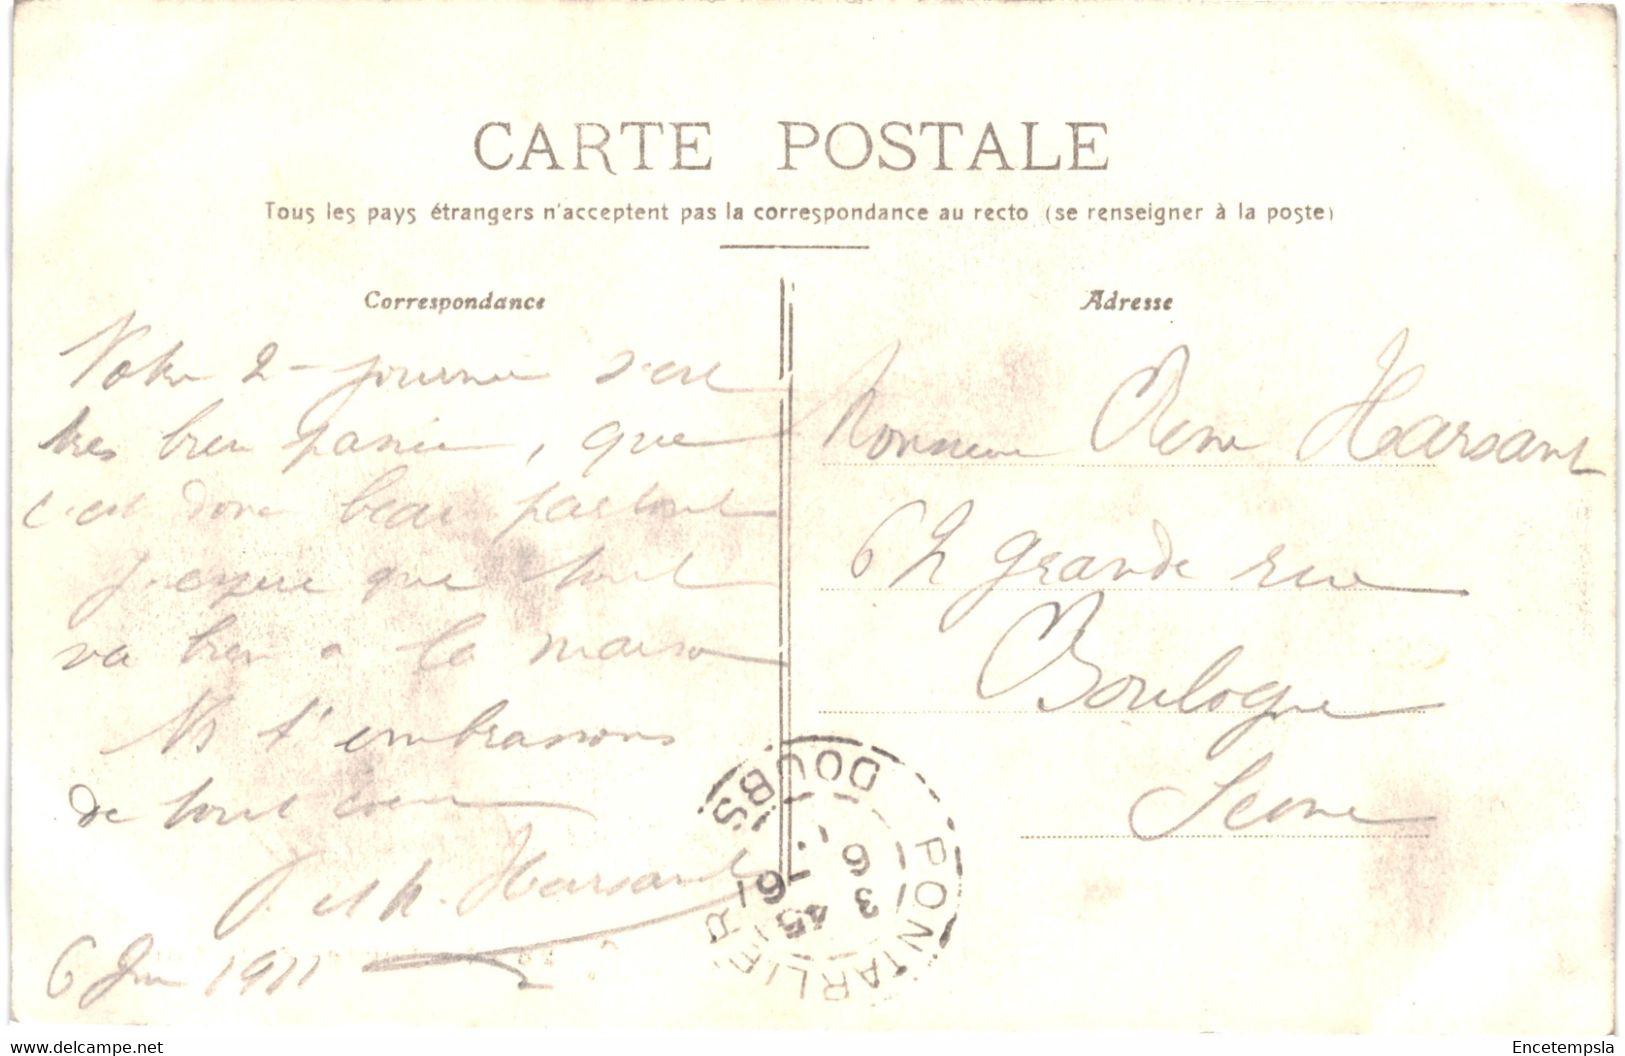 CARTE POSTALE
Tous les pays étrangers n'acceptent pas la correspondance au recto (se renseigner à la poste)
Correspondance
Notre 2e journée s'est
très bien passée, que
c'est donc beau partout
J'espère que tout
va bien a la maison
Ns t'embrassons
de tout coeur
J. et h. Harsant
6 Juin 1911
Adresse
Monsieur René Harsant
62 grande rue
Boulogne
Seine
PONTARLIER
DOUBS
3 45
www.delcampe.net
Encetempsla